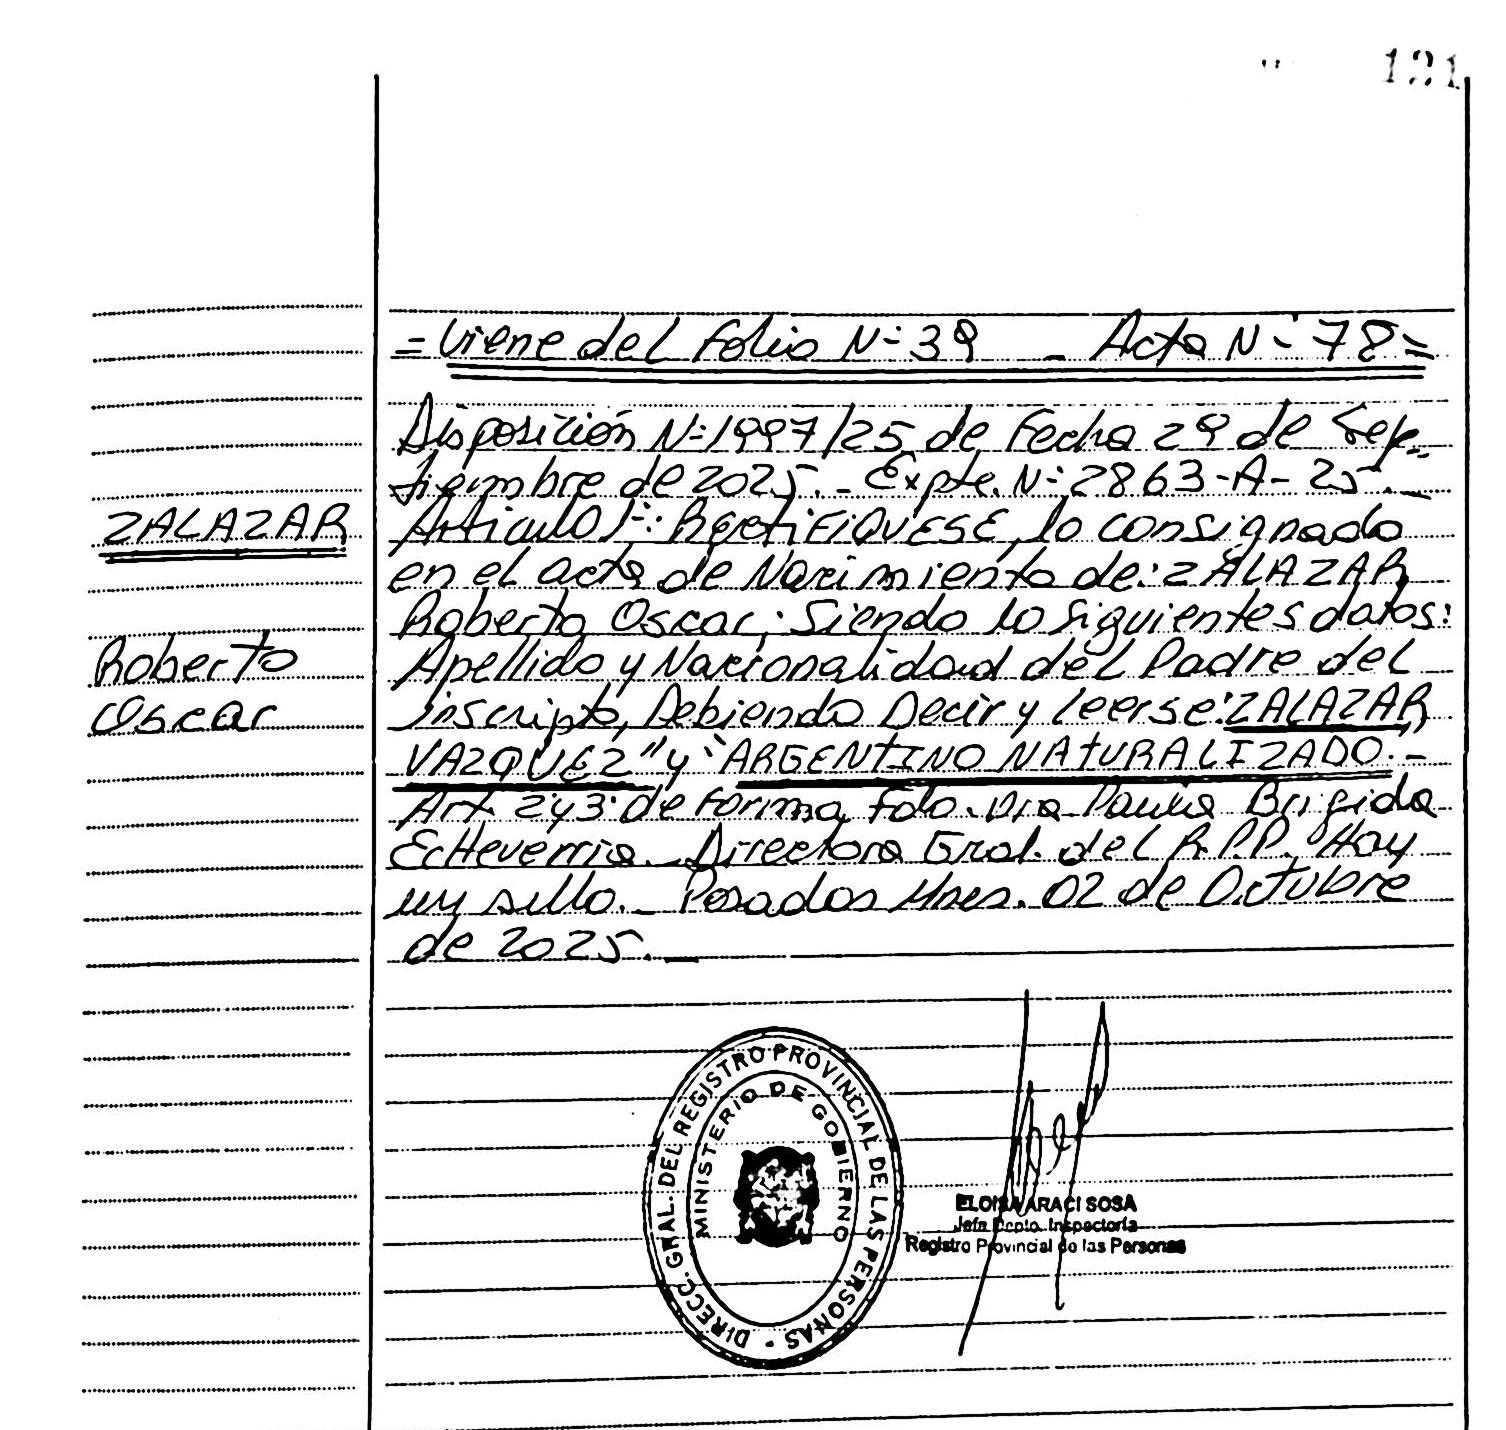 121
= Viene del Folio Nº 39 _ Acta Nº 78 =
Disposición Nº 1997/25 de Fecha 29 de Sep-
tiembre de 2025._ Expte. Nº 2863-A-25._
ZALAZAR
Articulo 1º: RectiFIQUESE, lo consignado
en el acta de Nacimiento de: ZALAZAR
Roberto Oscar; Siendo lo siguientes datos:
Roberto
Apellido y Nacionalidad del Padre del
Oscar
inscripto, Debiendo Decir y leerse: ZALAZAR
VAZQUEZ" y "ARGENTINO NATURALIZADO._
Art. 2º y 3º de Forma Fdo. Dra. Paula Brigida
EcHeverria._ Directora Gral. del R.P.P. Hay
un sello._ Posadas Mnes. 02 de Octubre
de 2025._
DIRECC. GRAL. DEL REGISTRO PROVINCIAL DE LAS PERSONAS
MINISTERIO DE GOBIERNO
ELOISA ARACI SOSA
Jefa Dpto. Inspectoría
Registro Provincial de las Personas